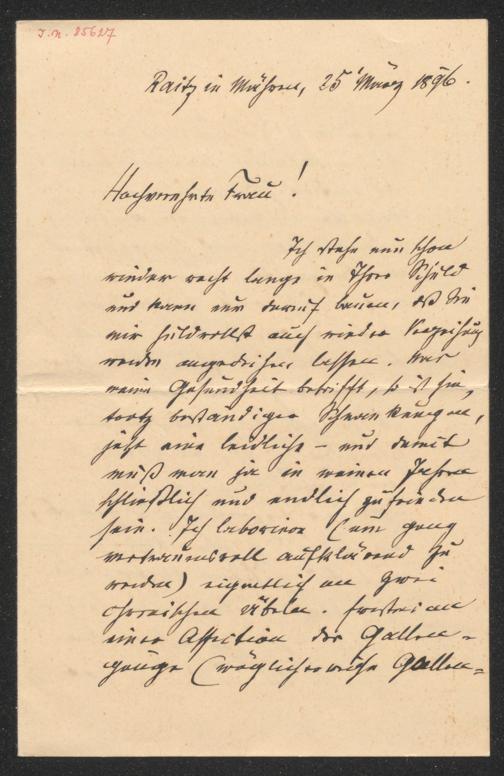 I.N. 85627
Raitz in Mähren, 25t März 1896.
Hochverehrte Frau!
Ich stehe nun schon
wieder recht lange in Ihrer Schuld
und kann nur darauf bauen, daß Sie
mir huldvollst auch wieder Verzeihung
werden angedeihen lassen. Was
meine Gesundheit betrifft, so ist sie,
trotz beständiger Schwankungen,
jetzt eine leidliche – und damit
muß man ja in meinen Jahren
schließlich und endlich zufrieden
sein. Ich laborire (um ganz
vertrauensvoll aufklärend zu
werden) eigentlich an zwei
chronischen Übeln. Erstens an
einer Affection der Gallen=
gänge (möglicherweise Gallen=